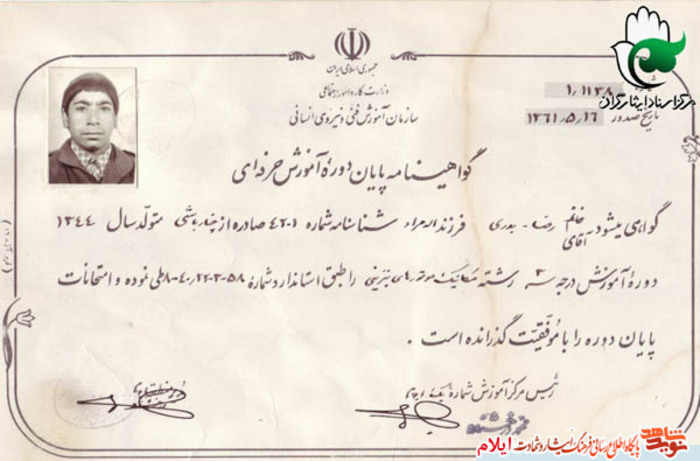 جمهوری اسلامی ایران
وزارت کار و امور اجتماعی
سازمان آموزش فنی و نیروی انسانی
مرکز اسناد ایثارگران
۱٫۱۱۳۸
تاریخ صدور ۱۳۶۱٫۵٫۱۶
گواهینامه پایان دوره آموزش حرفه‌ای
گواهی میشود خانم آقای رضا - بدری فرزند شناسنامه شماره ۴۲۰۱ صادره از متولد سال ۱۳۴۴
دوره آموزش درجه سه ۳ رشته مکانیک موتورهای بنزینی را طبق استاندارد شماره ۵۸-۳-۲۲٫۴۰-۸ طی نموده و امتحانات
پایان دوره را با موفقیت گذرانده است .
رئیس مرکز آموزش شماره یک
نوید شاهد پایگاه اطلاع رسانی فرهنگ ایثار و شهادت ایلام